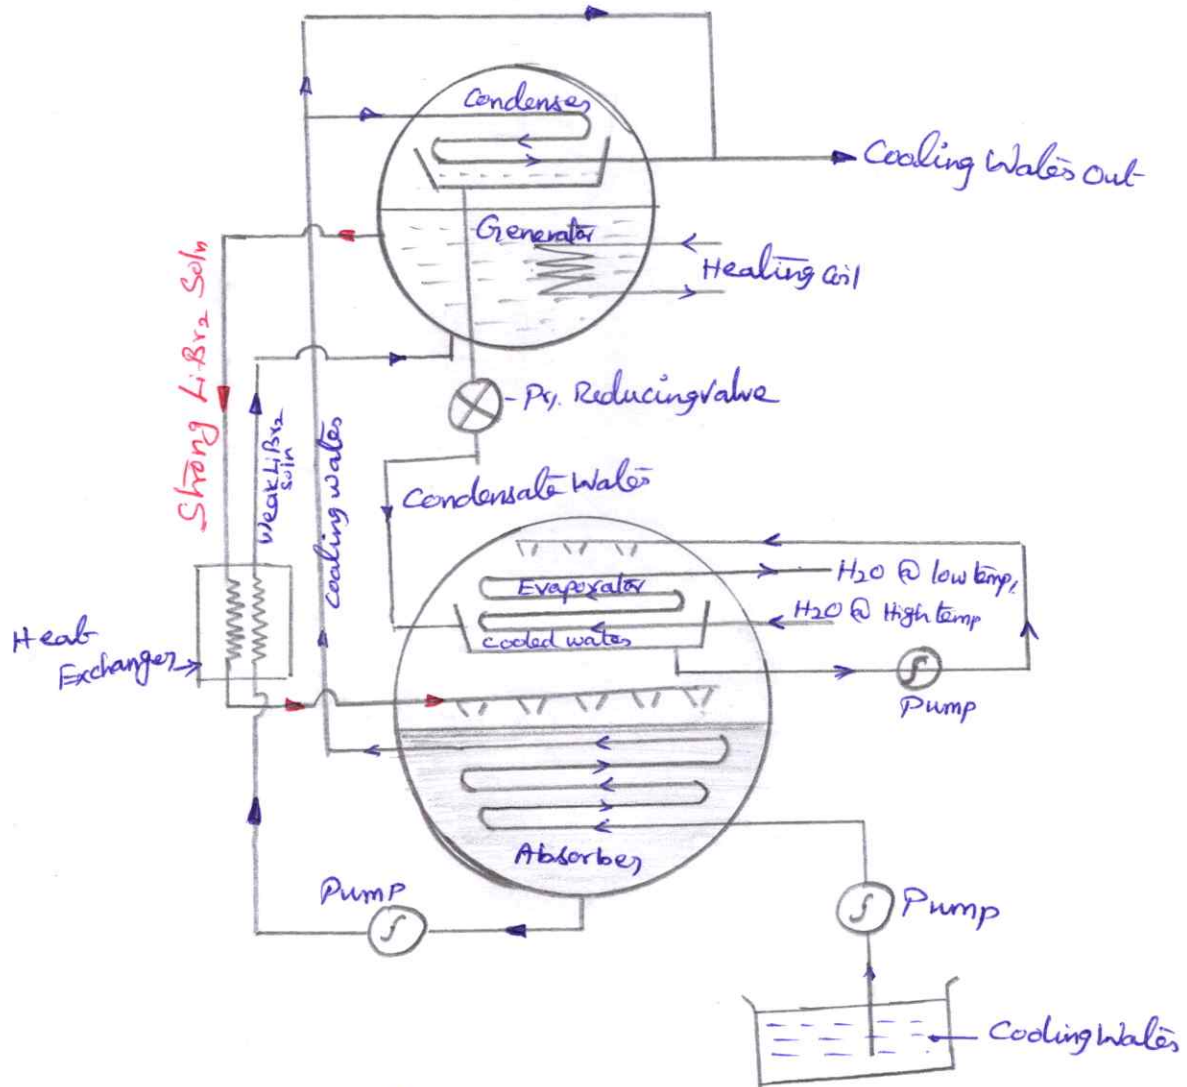 Condenser
Cooling Water Out
Generator
Heating Coil
Strong LiBr2 Soln
Weak LiBr2
Soln
Cooling water
- Pr. Reducing valve
Condensate Water
Evaporator
H2O @ low temp.
H2O @ High temp
Cooled water
Heat
Exchanger
Pump
Absorber
Pump
Pump
Cooling Water